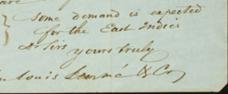 Some demand is expected
for the East Indies
Dr Sirs yours truly
Louis & Co